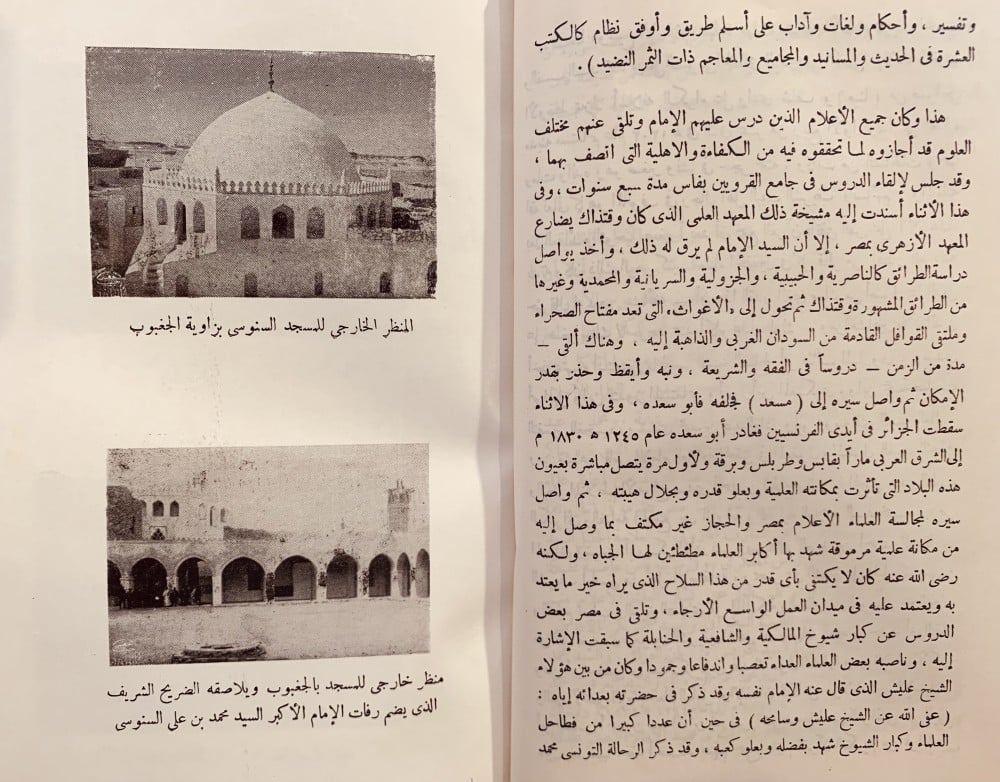 وتفسير ، وأحكام ولغات وآداب على أسلم طريق وأوفق نظام كالكتب
العشرة فى الحديث والمسانيد والمجاميع والمعاجم ذات الثمر النضيد ) .
هذا وكان جميع الأعلام الذين درس عليهم الإمام وتلقى عنهم مختلف
العلوم قد أجازوه لما تحققوه فيه من الكفاءة والاهلية التى اتصف بهما ،
وقد جلس لإلقاء الدروس فى جامع القرويين بفاس مدة سبع سنوات ، وفى
هذا الأثناء أسندت إليه مشيخة ذلك المعهد العلمى الذى كان وقتذاك يضارع
المعهد الأزهرى بمصر ، إلا أن السيد الإمام لم يرق له ذلك ، وأخذ يواصل
دراسة الطرائق كالناصرية والحبيبية ، والجزولية والسريانية والمحمدية وغيرها
من الطرائق المشهورة وقتذاك ثم تحول إلى «الأغواث» التى تعد مفتاح الصحراء
وملتقى القوافل القادمة من السودان الغربى والذاهبة إليه ، وهناك ألقى —
مدة من الزمن — دروساً فى الفقه والشريعة ، ونبه وأيقظ وحذر بقدر
الإمكان ثم واصل سيره إلى ( مسعد ) فجلفه فأبو سعده ، وفى هذا الاثناء
سقطت الجزائر فى أيدى الفرنسيين فغادر أبو سعده عام ١٢٤٥ ه ١٨٣٠ م
إلى الشرق العربى ماراً بقابس وطربلس وبرقة ولأول مرة يتصل مباشرة بعيون
هذه البلاد التى تأثرت بمكانته العلمية وبعلو قدره وبجلال هيبته ، ثم واصل
سيره لمجالسة العلماء الأعلام بمصر والحجاز غير مكتف بما وصل إليه
من مكانة علمية مرموقة شهد بها أكابر العلماء مطئطئين لها الجباه ، ولكنه
رضى الله عنه كان لا يكتفى بأى قدر من هذا السلاح الذى يراه خير ما يعتد
به ويعتمد عليه فى ميدان العمل الواسع الأرجاء ، وتلقى فى مصر بعض
الدروس عن كبار شيوخ المالكية والشافعية والحنابلة كما سبقت الإشارة
إليه ، وناصبه بعض العلماء العداء تعصبا واندفاعا وجمودا وكان من بين هؤلاء
الشيخ عليش الذى قال عنه الإمام نفسه وقد ذكر فى حضرته بعدائه إياه :
( عفى الله عن الشيخ عليش وسامحه ) فى حين أن عددا كبيرا من فطاحل
العلماء وكبار الشيوخ شهد بفضله وبعلو كعبه ، وقد ذكر الرحالة التونسى محمد
المنظر الخارجي للمسجد السنوسى بزاوية الجغبوب
منظر خارجي للمسجد بالجغبوب ويلاصقه الضريح الشريف
الذى يضم رفات الإمام الأكبر السيد محمد بن على السنوسى